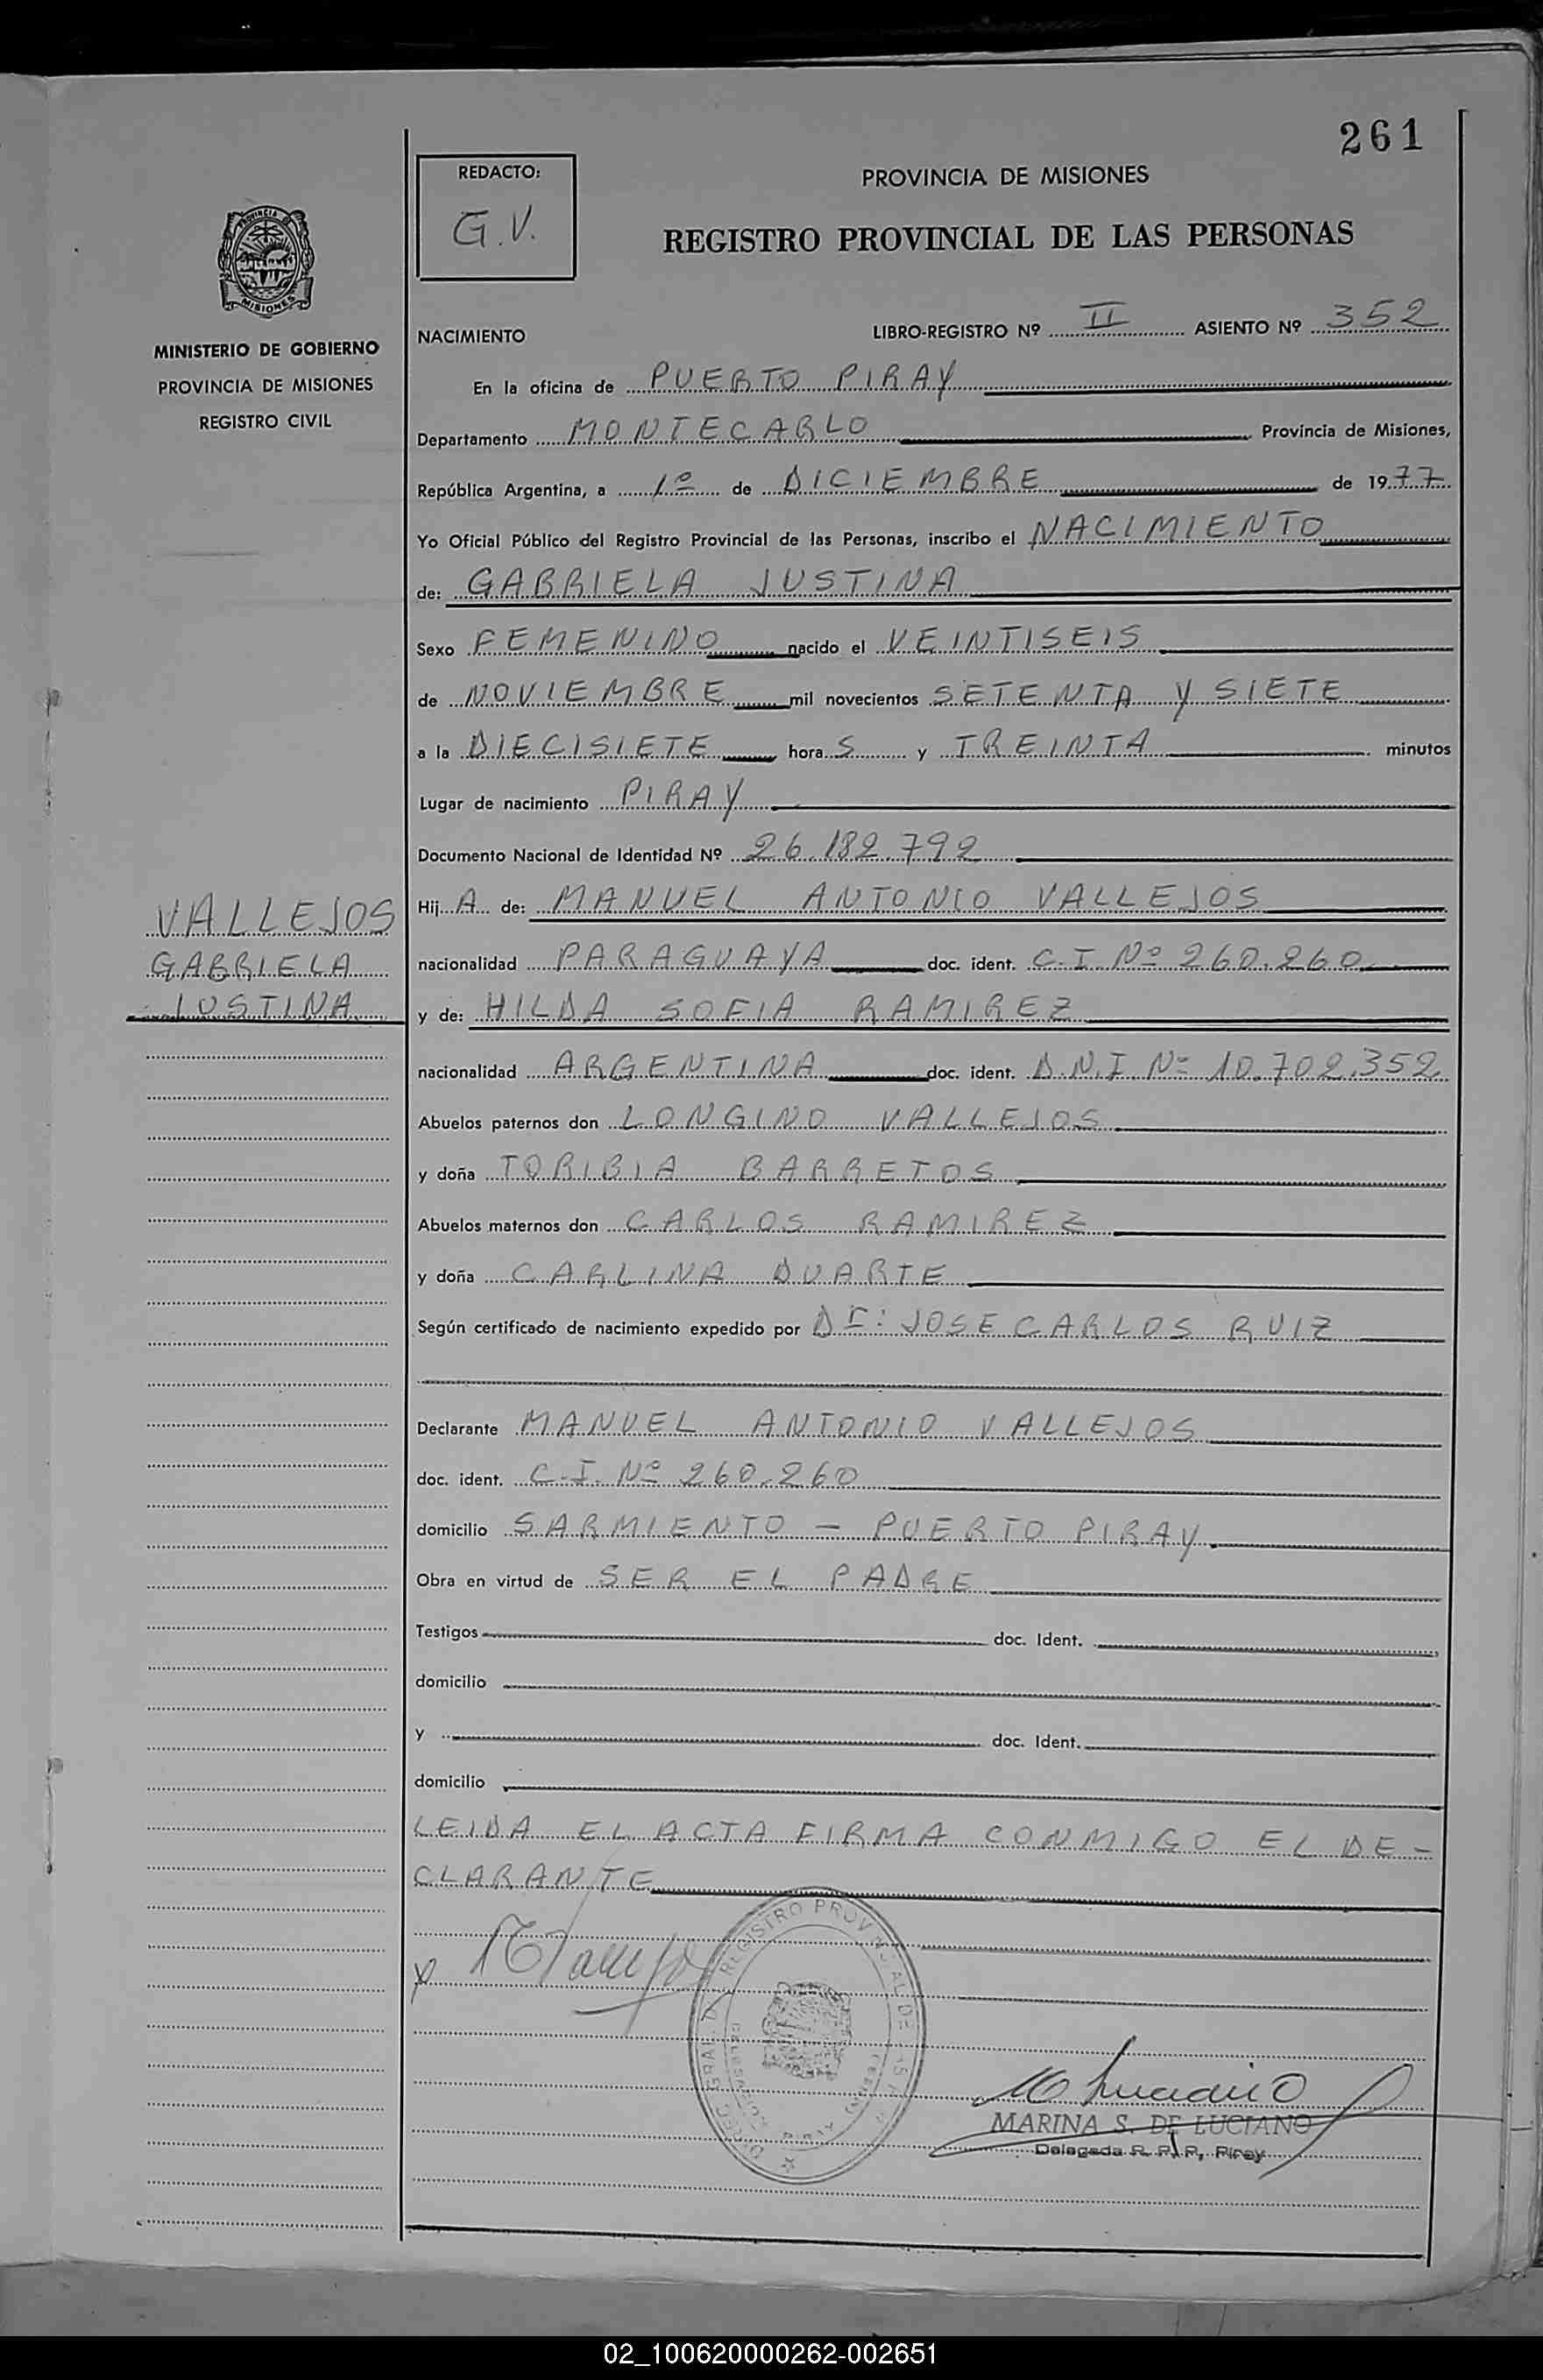 261
REDACTO:
G.V.
PROVINCIA DE MISIONES
REGISTRO PROVINCIAL DE LAS PERSONAS
MISIONES
MINISTERIO DE GOBIERNO
PROVINCIA DE MISIONES
REGISTRO CIVIL
NACIMIENTO LIBRO-REGISTRO Nº II ASIENTO Nº 352
En la oficina de PUERTO PIRAY
Departamento MONTECARLO Provincia de Misiones,
República Argentina, a 1º de DICIEMBRE de 1977
Yo Oficial Público del Registro Provincial de las Personas, inscribo el NACIMIENTO
de: GABRIELA JUSTINA
Sexo FEMENINO nacido el VEINTISEIS
de NOVIEMBRE mil novecientos SETENTA Y SIETE
a la DIECISIETE hora S y TREINTA minutos
Lugar de nacimiento PIRAY
Documento Nacional de Identidad Nº 26.182.792
Hij A de: MANUEL ANTONIO VALLEJOS
VALLEJOS
GABRIELA
JUSTINA
nacionalidad PARAGUAYA doc. ident. C.I. Nº 260.260
y de: HILDA SOFIA RAMIREZ
nacionalidad ARGENTINA doc. ident. D.N.I Nº 10.702.352
Abuelos paternos don LONGINO VALLEJOS
y doña TORIBIA BARRETOS
Abuelos maternos don CARLOS RAMIREZ
y doña CARLINA DUARTE
Según certificado de nacimiento expedido por Dr: JOSE CARLOS RUIZ
Declarante MANUEL ANTONIO VALLEJOS
doc. ident. C.I. Nº 260.260
domicilio SARMIENTO - PUERTO PIRAY
Obra en virtud de SER EL PADRE
Testigos doc. Ident.
domicilio
y doc. Ident.
domicilio
LEIDA EL ACTA FIRMA CONMIGO EL DE-
CLARANTE
MARINA S. DE LUCIANO
Delegada R. P. P. Piray
02_100620000262-002651